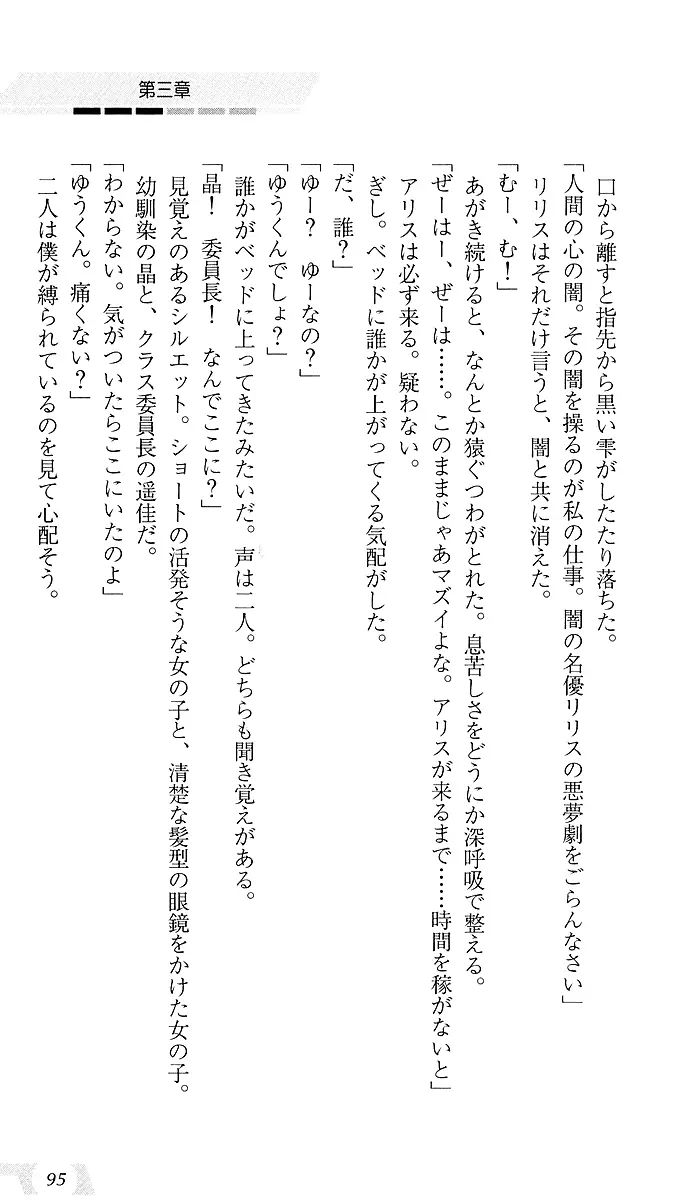 第三章
口から離すと指先から黒い雫がしたたり落ちた。
「人間の心の闇。その闇を操るのが私の仕事。闇の名優リリスの悪夢劇をごらんなさい」
リリスはそれだけ言うと、闇と共に消えた。
「むー、む！」
あがき続けると、なんとか猿ぐつわがとれた。息苦しさをどうにか深呼吸で整える。
「ぜーはー、ぜーは……。このままじゃあマズイよな。アリスが来るまで……時間を稼がないと」
アリスは必ず来る。疑わない。
ぎし。ベッドに誰かが上がってくる気配がした。
「だ、誰？」
「ゆー？　ゆーなの？」
「ゆうくんでしょ？」
誰かがベッドに上ってきたみたいだ。声は二人。どちらも聞き覚えがある。
「晶！　委員長！　なんでここに？」
見覚えのあるシルエット。ショートの活発そうな女の子と、清楚な髪型の眼鏡をかけた女の子。
幼馴染の晶と、クラス委員長の遥佳だ。
「わからない。気がついたらここにいたのよ」
「ゆうくん。痛くない？」
二人は僕が縛られているのを見て心配そう。
95